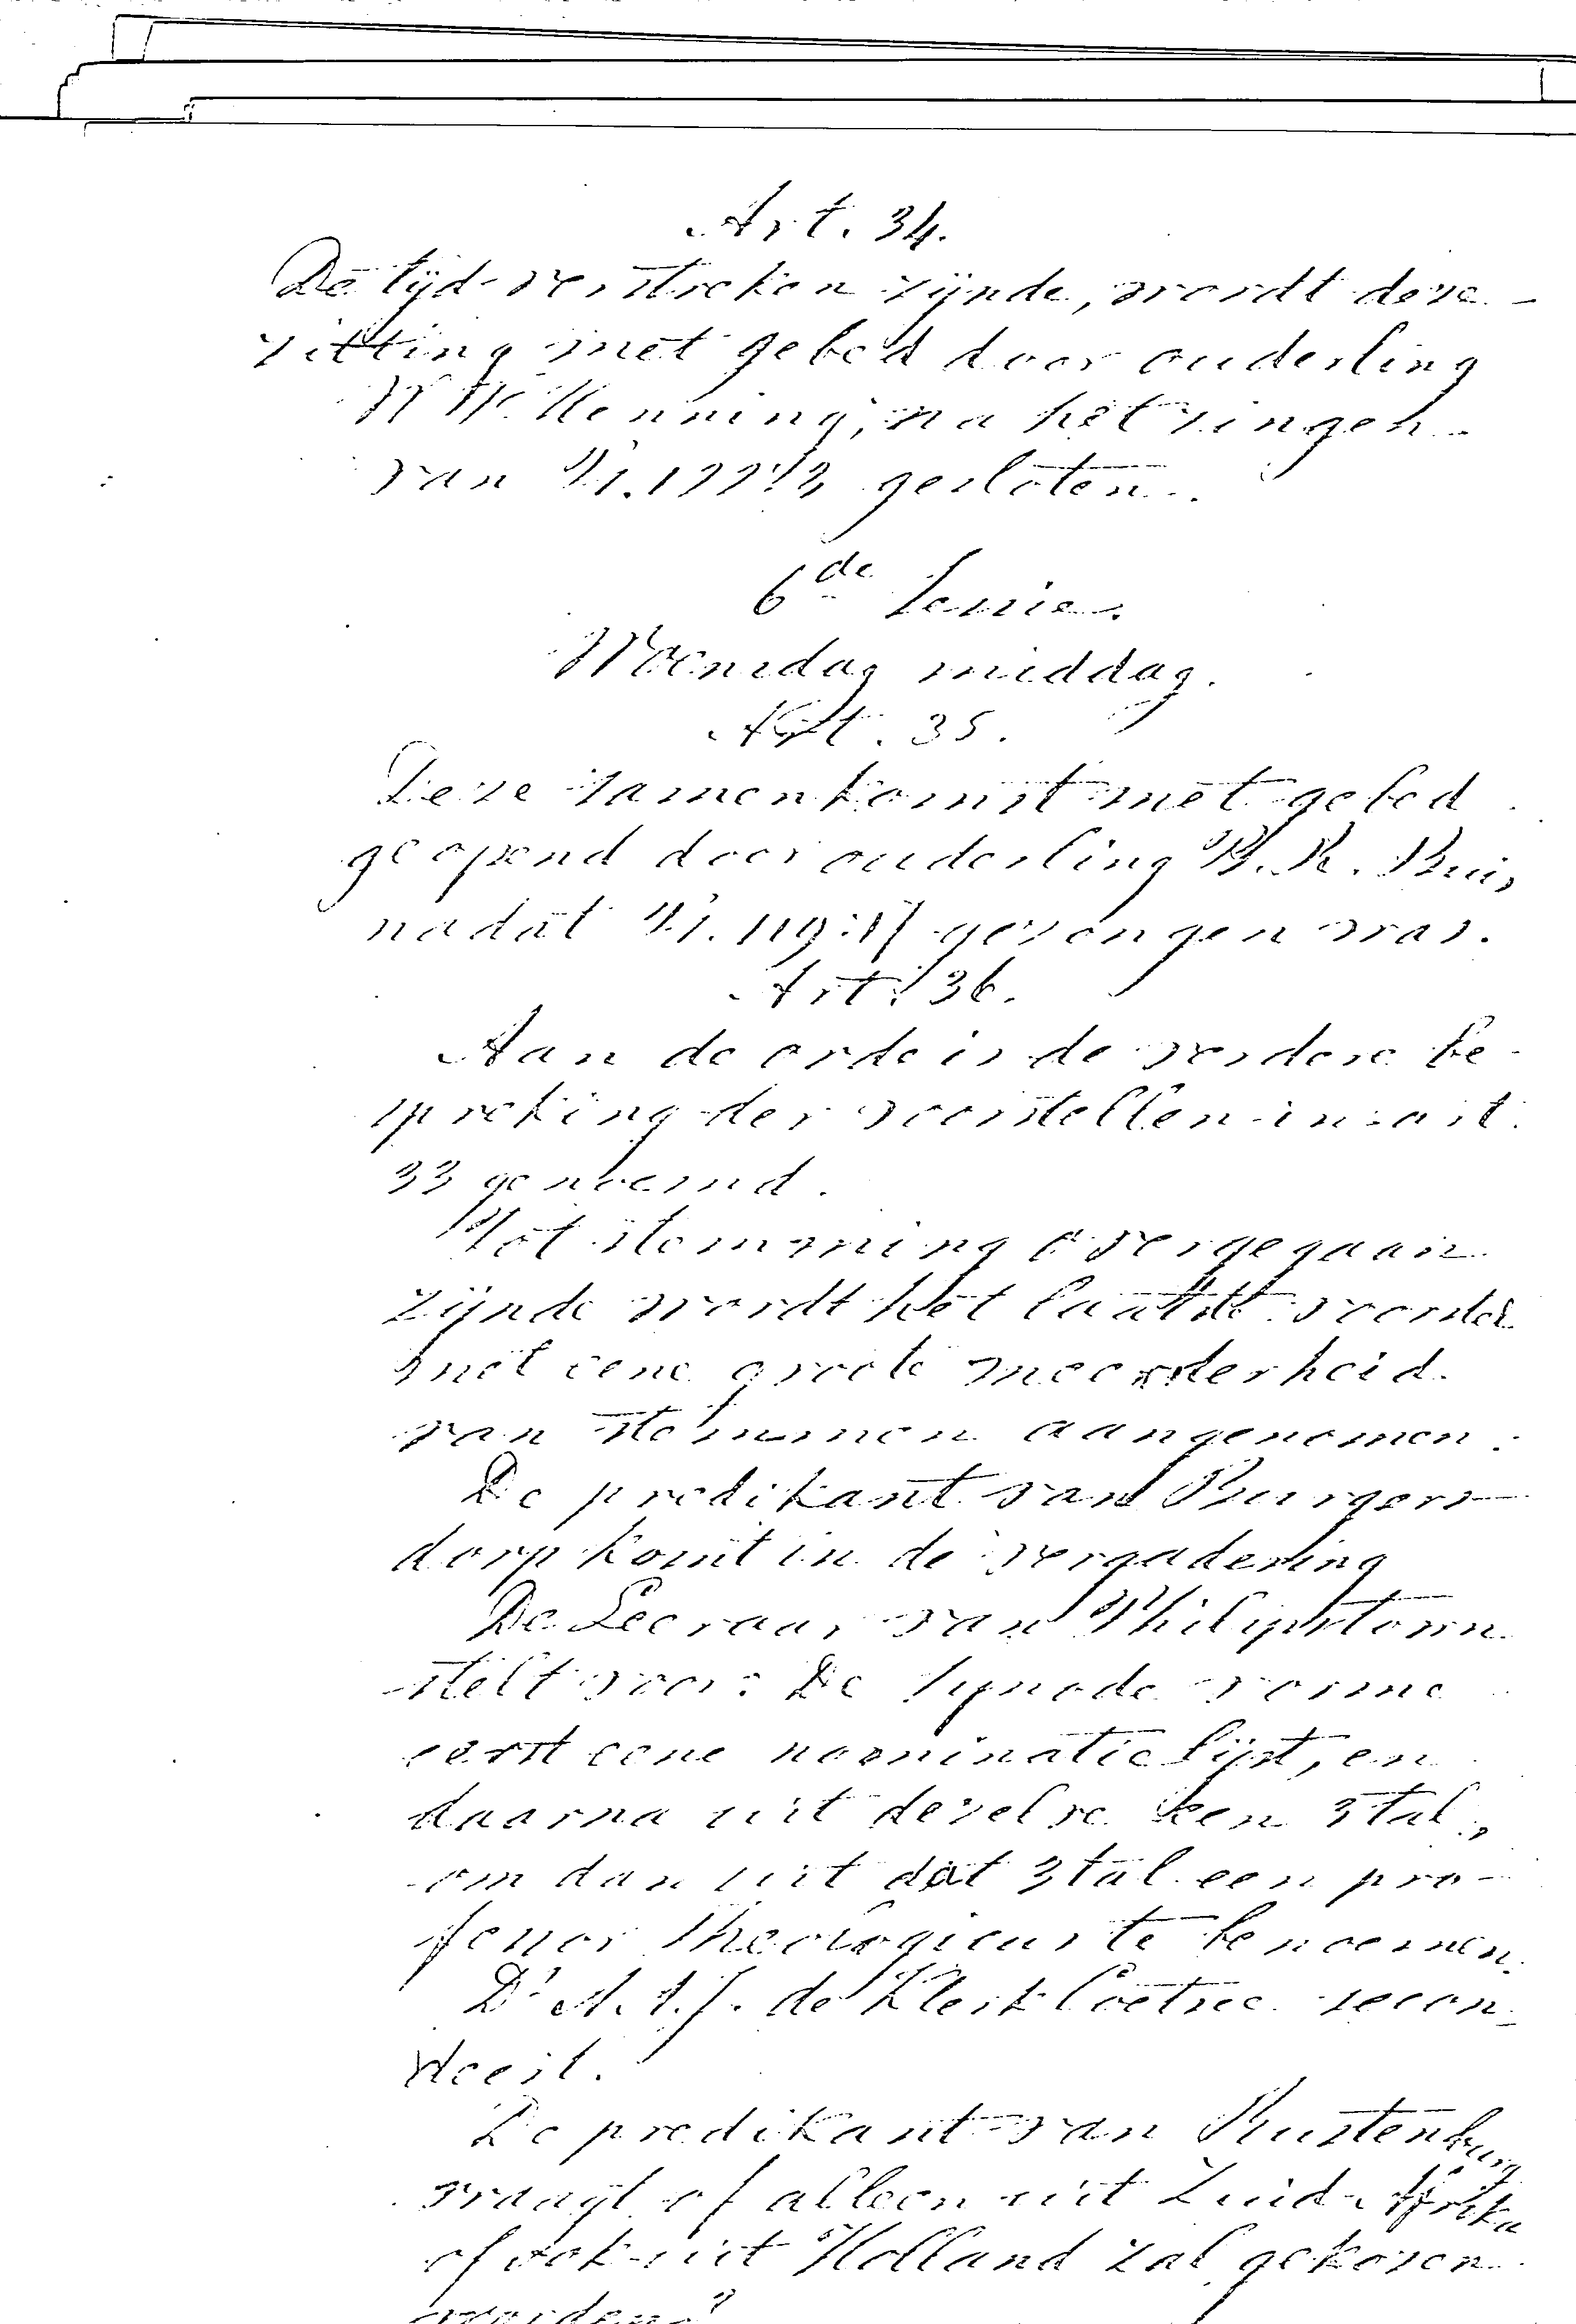 Art. 34.
De tijd verstreken zijnde, wordt deze
zitting met gebed door ouderling
Venning, na het zingen
van Ps. gesloten.
6de Sessie.
Woensdag middag.
Art. 35.
Deze zamenkomst met gebed
geopend door ouderling B. R. Buis
nadat Ps. 119: gezongen was.
Art. 36.
Aan de orde is de verdere be-
spreking der voorstellen in art.
33 genoemd.
Tot stemming overgegaan
zijnde wordt het laatste voorstel
met eene groote meerderheid
van stemmen aangenomen.
De predikant van Burgers-
dorp komt in de vergadering
De Leeraar van Philipstown
stelt voor: De Synode vorme
eerst eene nominatie lijst, en
daarna uit dezelve een 3tal,
om dan uit dat 3tal een pro-
fessor Theologicus te benoemen.
Ds A. A. J. de Klerk Coetzee secon-
deert.
De predikant van Rustenburg
vraagt of alleen uit Zuid-Afrika
of ook uit Holland zal gekozen
worden?